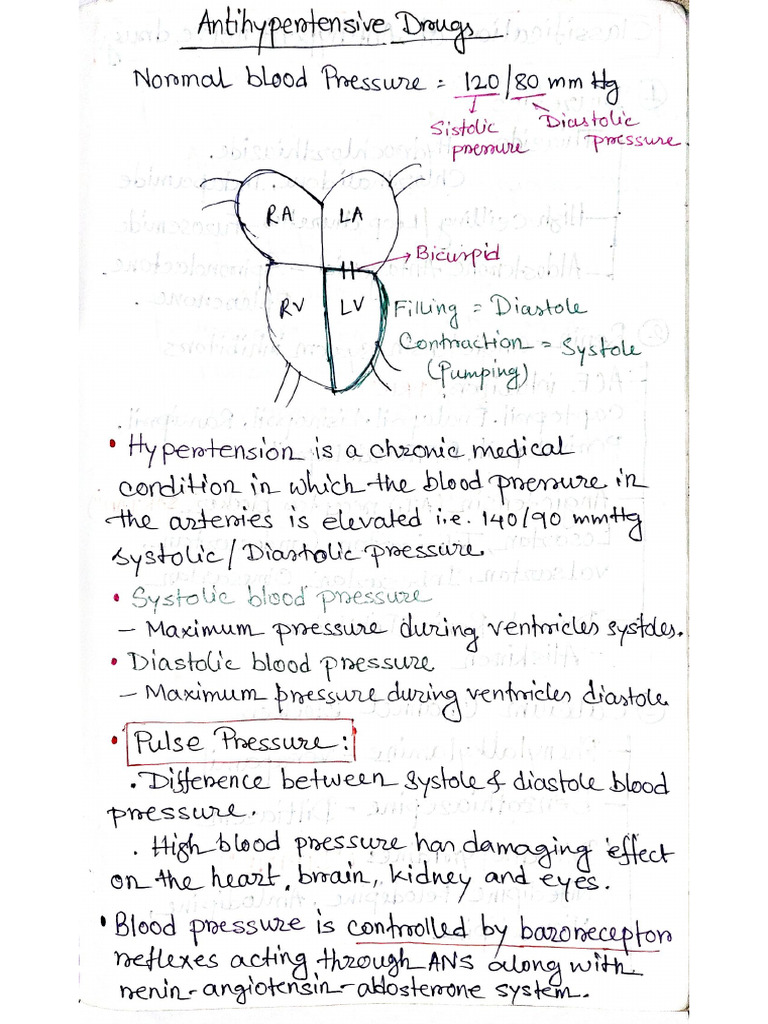 Antihypertensive Drugs
Normal blood Pressure = 120/80 mm Hg
Sistolic pressure
Diastolic pressure
RA
LA
Bicuspid
RV
LV
Filling = Diastole
Contraction = Systole
(Pumping)
• Hypertension is a chronic medical
condition in which the blood pressure in
the arteries is elevated i.e. 140/90 mmHg
systolic/Diastolic pressure.
• Systolic blood pressure
– Maximum pressure during ventricles systoles.
• Diastolic blood pressure
– Maximum pressure during ventricles diastole
• Pulse Pressure:
. Difference between systole & diastole blood
pressure.
. High blood pressure has damaging effect
on the heart, brain, kidney and eyes.
• Blood pressure is controlled by baroreceptor
reflexes acting through ANS along with
renin-angiotensin-aldosterone system.